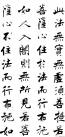 此法無實無虛須菩提若
菩薩心住於法而行布施
如人入闇則無所見若菩
薩心不住法而行布施如